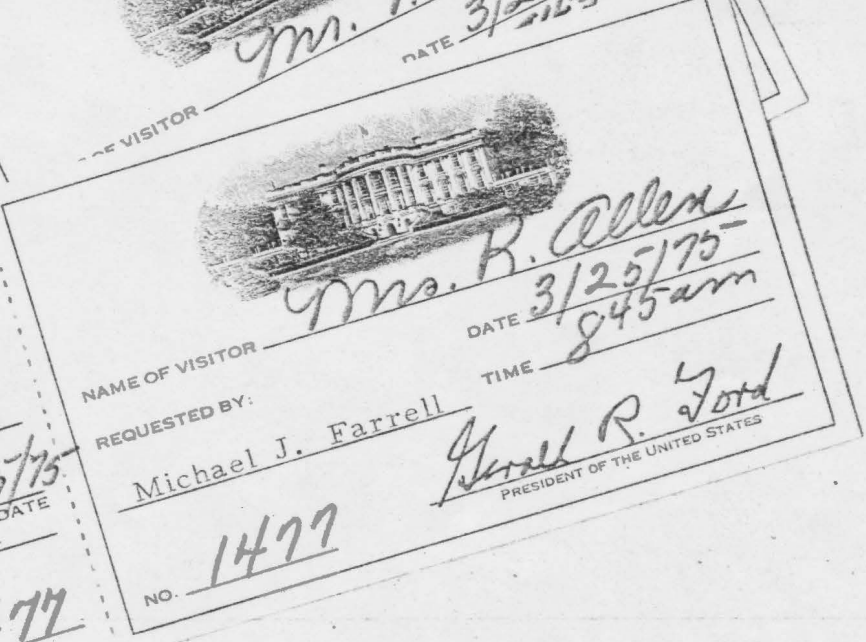 Mr.
DATE 3/2
OF VISITOR
NAME OF VISITOR Mrs. R. Allen
DATE 3/25/75
TIME 845am
REQUESTED BY:
Michael J. Farrell
Gerald R. Ford
PRESIDENT OF THE UNITED STATES
NO. 1477
5/75
DATE
77